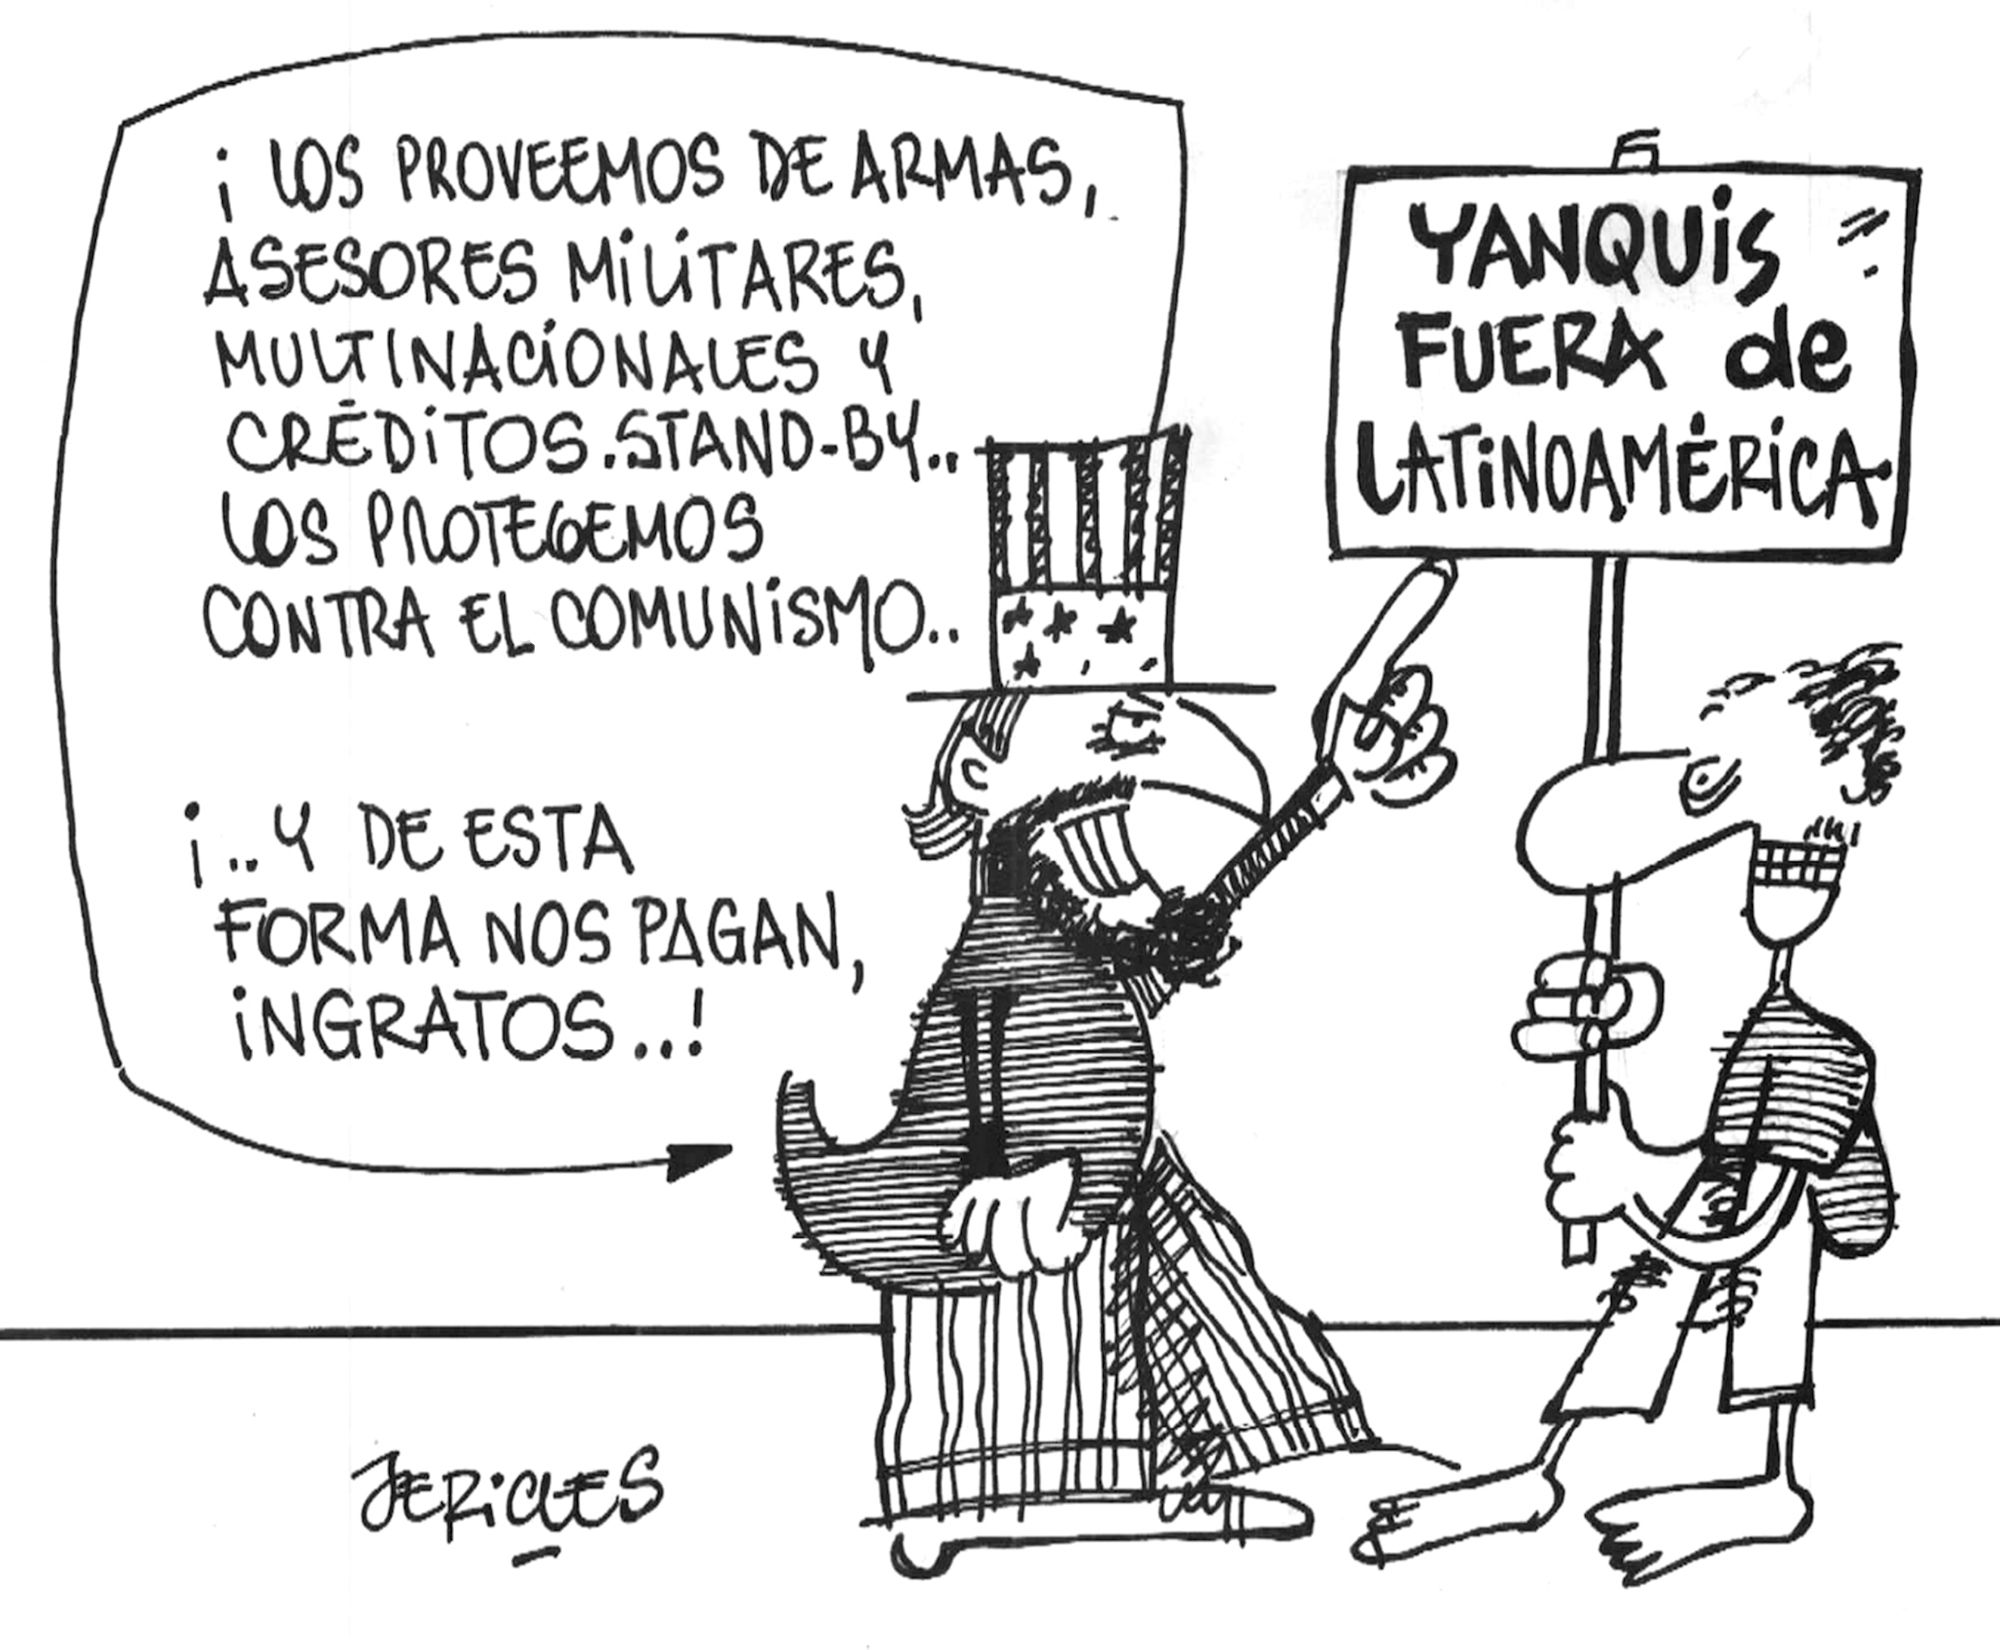 ¡LOS PROVEEMOS DE ARMAS,
ASESORES MILITARES,
MULTINACIONALES Y
CRÉDITOS.STAND-BY..
LOS PROTEGEMOS
CONTRA EL COMUNISMO..
¡..Y DE ESTA
FORMA NOS PAGAN,
INGRATOS..!
YANQUIS
FUERA de
LATINOAMÉRICA
JERICLES